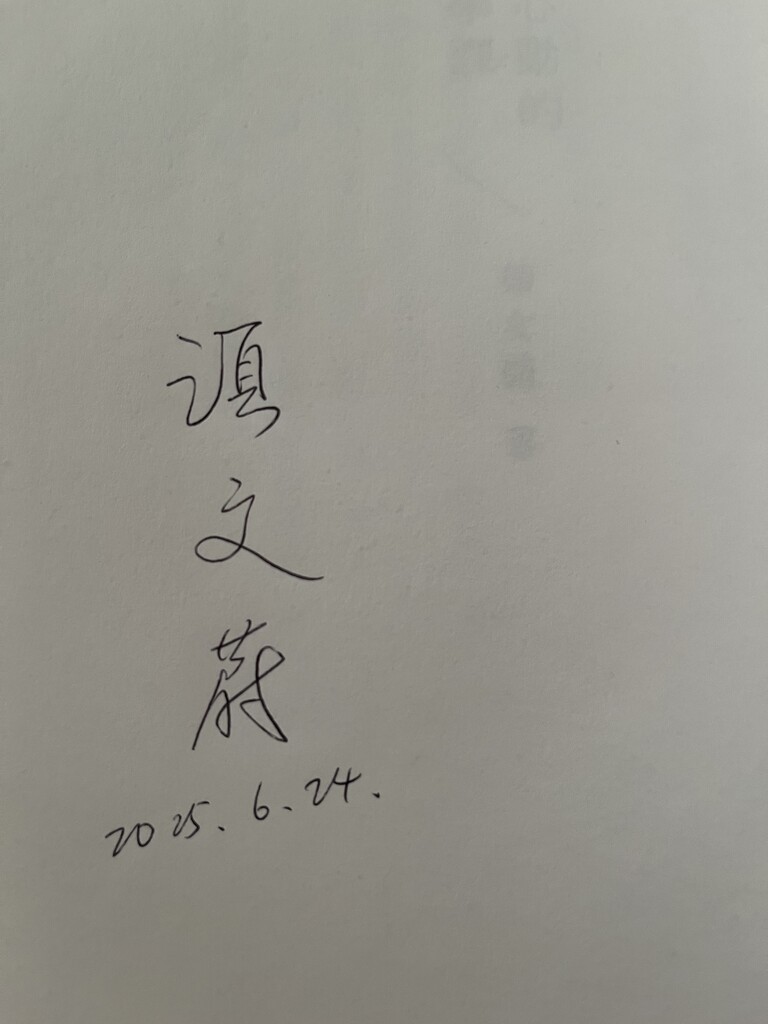 須文蔚
2025.6.24.